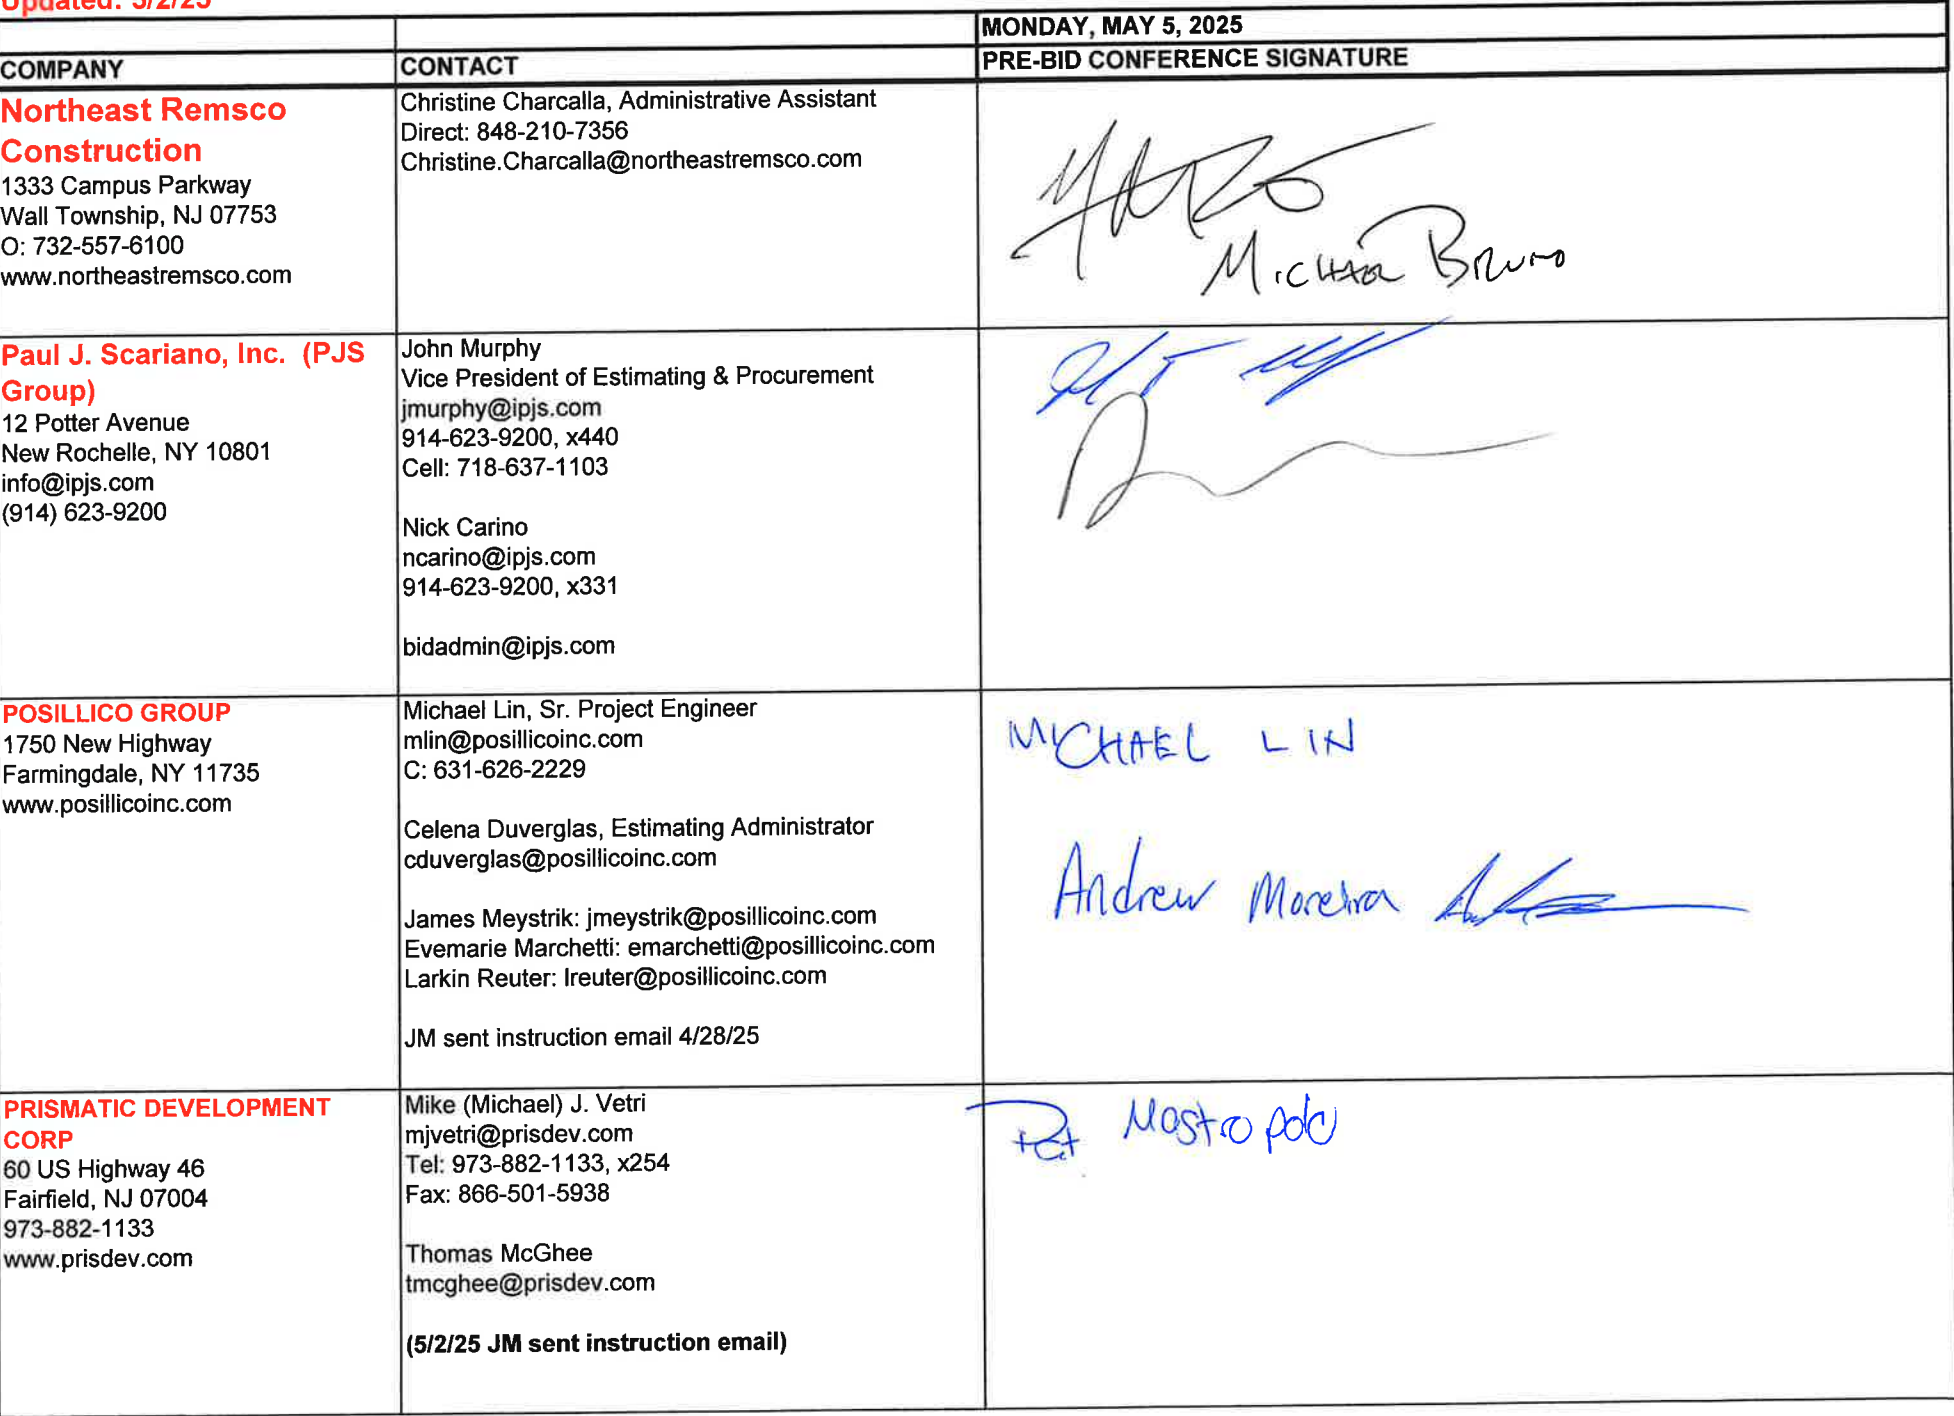 Updated: 5/2/25
MONDAY, MAY 5, 2025
COMPANY
CONTACT
PRE-BID CONFERENCE SIGNATURE
Northeast Remsco
Construction
1333 Campus Parkway
Wall Township, NJ 07753
O: 732-557-6100
www.northeastremsco.com
Christine Charcalla, Administrative Assistant
Direct: 848-210-7356
Christine.Charcalla@northeastremsco.com
MICHAEL BRUNO
Paul J. Scariano, Inc. (PJS
Group)
12 Potter Avenue
New Rochelle, NY 10801
info@ipjs.com
(914) 623-9200
John Murphy
Vice President of Estimating & Procurement
jmurphy@ipjs.com
914-623-9200, x440
Cell: 718-637-1103
Nick Carino
ncarino@ipjs.com
914-623-9200, x331
bidadmin@ipjs.com
POSILLICO GROUP
1750 New Highway
Farmingdale, NY 11735
www.posillicoinc.com
Michael Lin, Sr. Project Engineer
mlin@posillicoinc.com
C: 631-626-2229
Celena Duverglas, Estimating Administrator
cduverglas@posillicoinc.com
James Meystrik: jmeystrik@posillicoinc.com
Evemarie Marchetti: emarchetti@posillicoinc.com
Larkin Reuter: lreuter@posillicoinc.com
JM sent instruction email 4/28/25
MICHAEL LIN
Andrew Moreira
PRISMATIC DEVELOPMENT
CORP
60 US Highway 46
Fairfield, NJ 07004
973-882-1133
www.prisdev.com
Mike (Michael) J. Vetri
mjvetri@prisdev.com
Tel: 973-882-1133, x254
Fax: 866-501-5938
Thomas McGhee
tmcghee@prisdev.com
(5/2/25 JM sent instruction email)
Pat